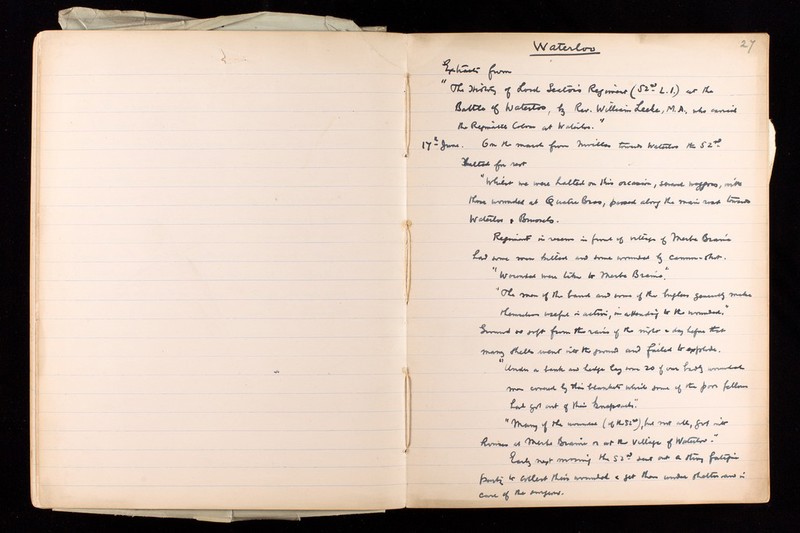 27
Waterloo
Extracts from
"The History of Lord Seaton's Regiment (52nd L.I.) at the
Battle of Waterloo, by Rev. William Leeke, M.A. who carried
the Regimental Colour at Waterloo."
17th June. On the march from Nivelles towards Waterloo the 52nd
halted for rest
"Whilst we were halted on this occasion, several waggons, with
those wounded at Quatre Bras, passed along the main road towards
Waterloo & Brussels.
Regiment in reserve in front of village of Merbe Braine
had some men killed and some wounded by cannon-shot.
"Wounded were taken to Merbe Braine."
"The men of the band and some of the buglers generally make
themselves useful in action, in attending to the wounded."
Ground so soft from the rain of the night & day before that
many shells went into the ground and failed to explode.
"Under a bank and hedge lay some 20 of our badly wounded
men covered by their blankets which some of the poor fellows
had got out of their knapsacks".
"Many of the wounded (of the 52nd), but not all, got into
houses at Merbe Braine or at the Village of Waterloo."
Early next morning the 52nd sent out a strong fatigue
party to collect their wounded & get them under shelter and in
care of the surgeons.